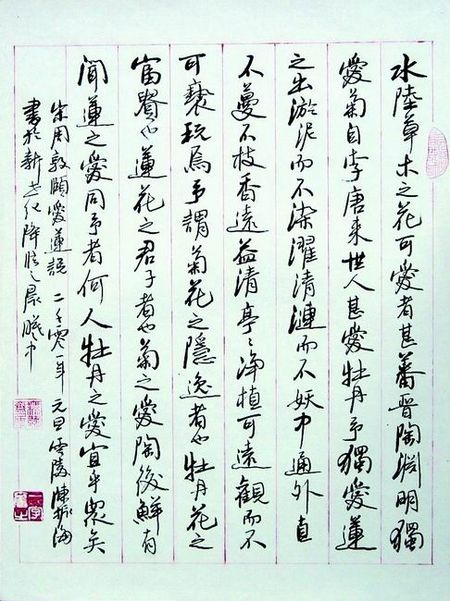 水陸草木之花可愛者甚蕃晉陶淵明獨
愛菊自李唐来世人甚愛牡丹予獨愛蓮
之出淤泥而不染濯清漣而不妖中通外直
不蔓不枝香遠益清亭〻净植可遠觀而不
可褻玩焉予謂菊花之隱逸者也牡丹花之
富貴也蓮花之君子者也菊之愛陶後鮮有
聞蓮之愛同予者何人牡丹之愛宜乎眾矣
宋周敦頤愛蓮語 二千零一年 元日零陵陳振海
書於新世纪降临之晨曦中